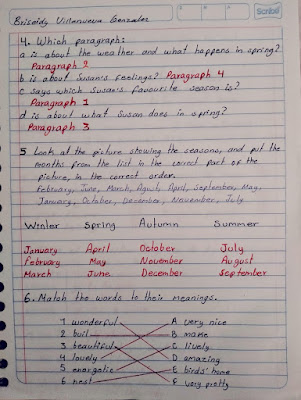 Briseidy Villanueva Gonzales
Scribe
4. Which paragraph:
a is about the weather and what happens in spring?
Paragraph 2
b is about Susan's feelings? Paragraph 4
c says which Susan's favourite season is?
Paragraph 1
d is about what Susan does in spring?
Paragraph 3
5. Look at the picture showing the seasons, and put the
months from the list in the correct part of the
picture, in the correct order.
February, June, March, Agust, April, September, May,
January, October, December, November, July
Winter Spring Autumn Summer
January April October July
February May November August
March June December September
6. Match the words to their meanings.
1 wonderful A very nice
2 buil B make
3 beautiful C lively
4 lovely D amazing
5 energetic E birds' home
6 nest F very pretty